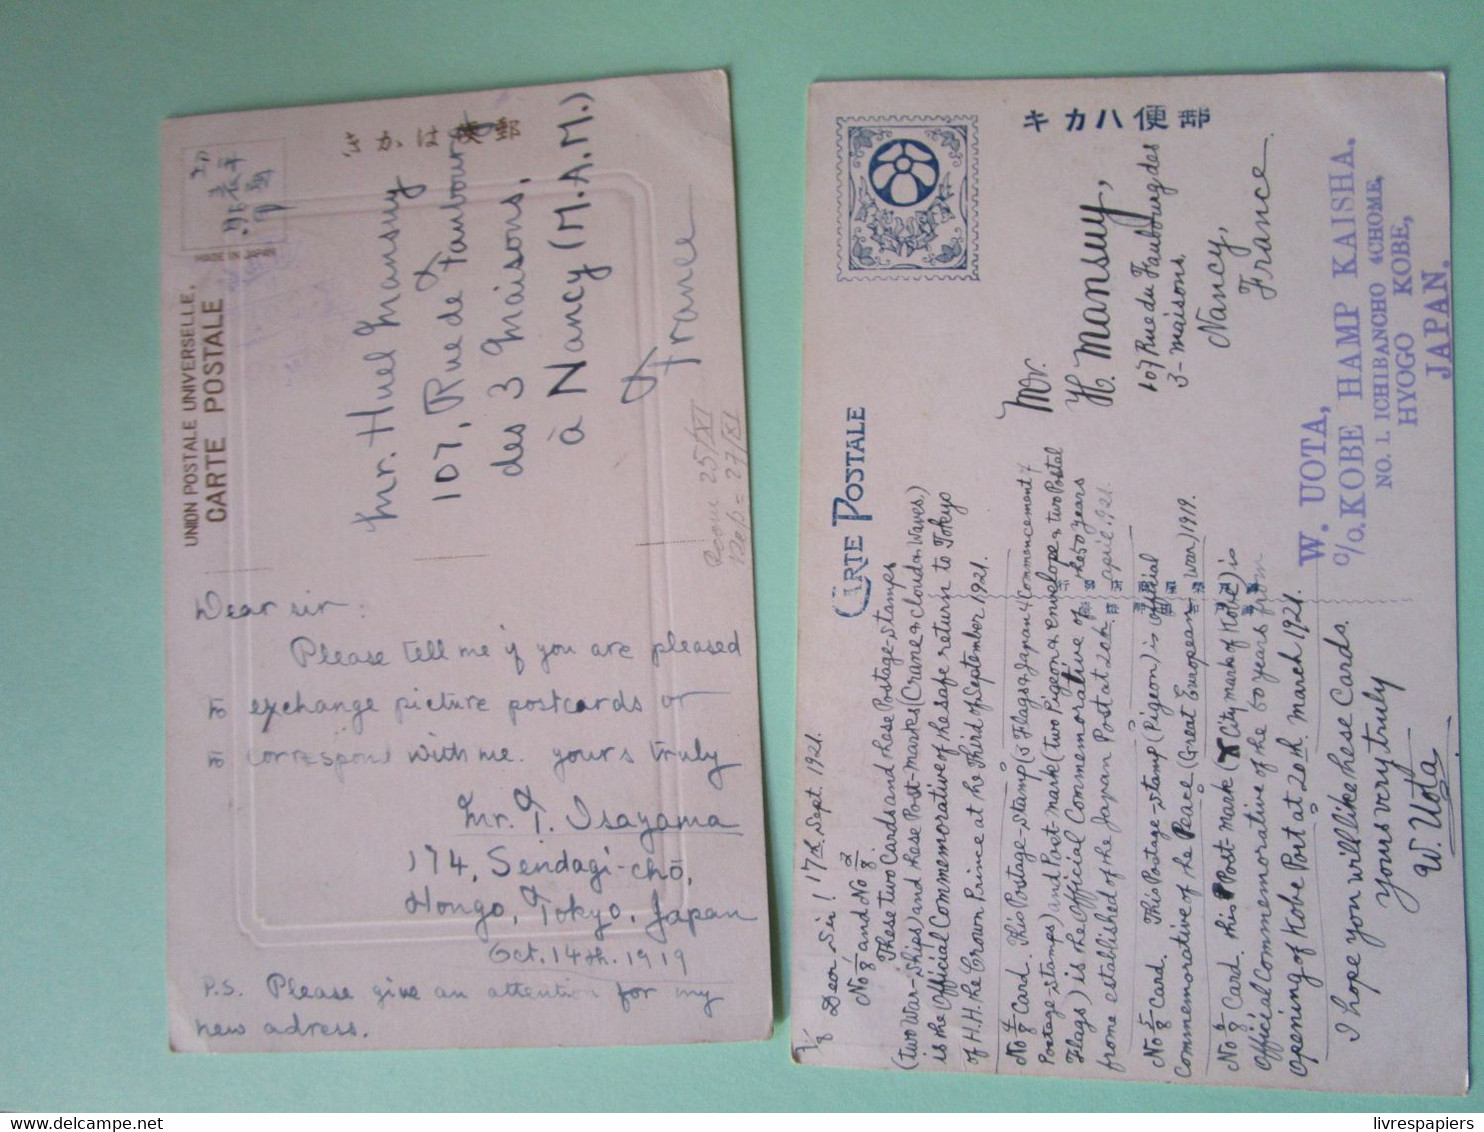 UNION POSTALE UNIVERSELLE.
CARTE POSTALE
Mr. Huel Mansuy
107, Rue de Faubourg
des 3 Maisons,
à Nancy (M.A.M.)
France
Recu 25/XI
Rep = 27/XI
Dear sir:
Please tell me if you are pleased
to exchange picture postcards or
to correspond with me. yours truly
Mr. T. Isayama
174, Sendagi-chō,
Hongo, Tokyo, Japan
Oct. 14th. 1919
P.S. Please give an attention for my
new adress.
キカハ便郵
CARTE POSTALE
Mr.
H. Mansuy,
107 Rue du Faubourg des
3-maisons,
Nancy,
France
W. UOTA,
C/o. KOBE HAMP KAISHA.
NO. 1. ICHIBANCHO 4CHOME,
HYOGO KOBE,
JAPAN.
1/8 Dear Sir! 17th Sept. 1921.
No 1/8 and No 2/8.
These two Cards and these Postage-stamps
(two War-ships) and these Post-marks (Crame & clouds & Waves.)
is the Official Commemorative of the safe return to Tokyo
of H.H. the Crown Prince at the Third of September 1921.
No 4/8 Card. This Postage-Stamp (5 Flags & Japan 4 Commencement 4
Postage-stamps) and Post-mark (two Pigeon & envelope & two Postal
Flags) is the Official Commemorative of the 50 years
frome established of the Japan Post at 20th april 1921.
No 5/8 Card. This Postage-stamp (Pigeon) is official
Commemorative of the Peace (Great European War) 1919.
No 6/8 Card. this Post-mark (City mark of Kobe) is
Official Commemorative of the 50 years from
opening of Kobe Port at 20th. march 1921.
I hope you will like these Cards.
yours very truly
W. Uota
livrespapiers